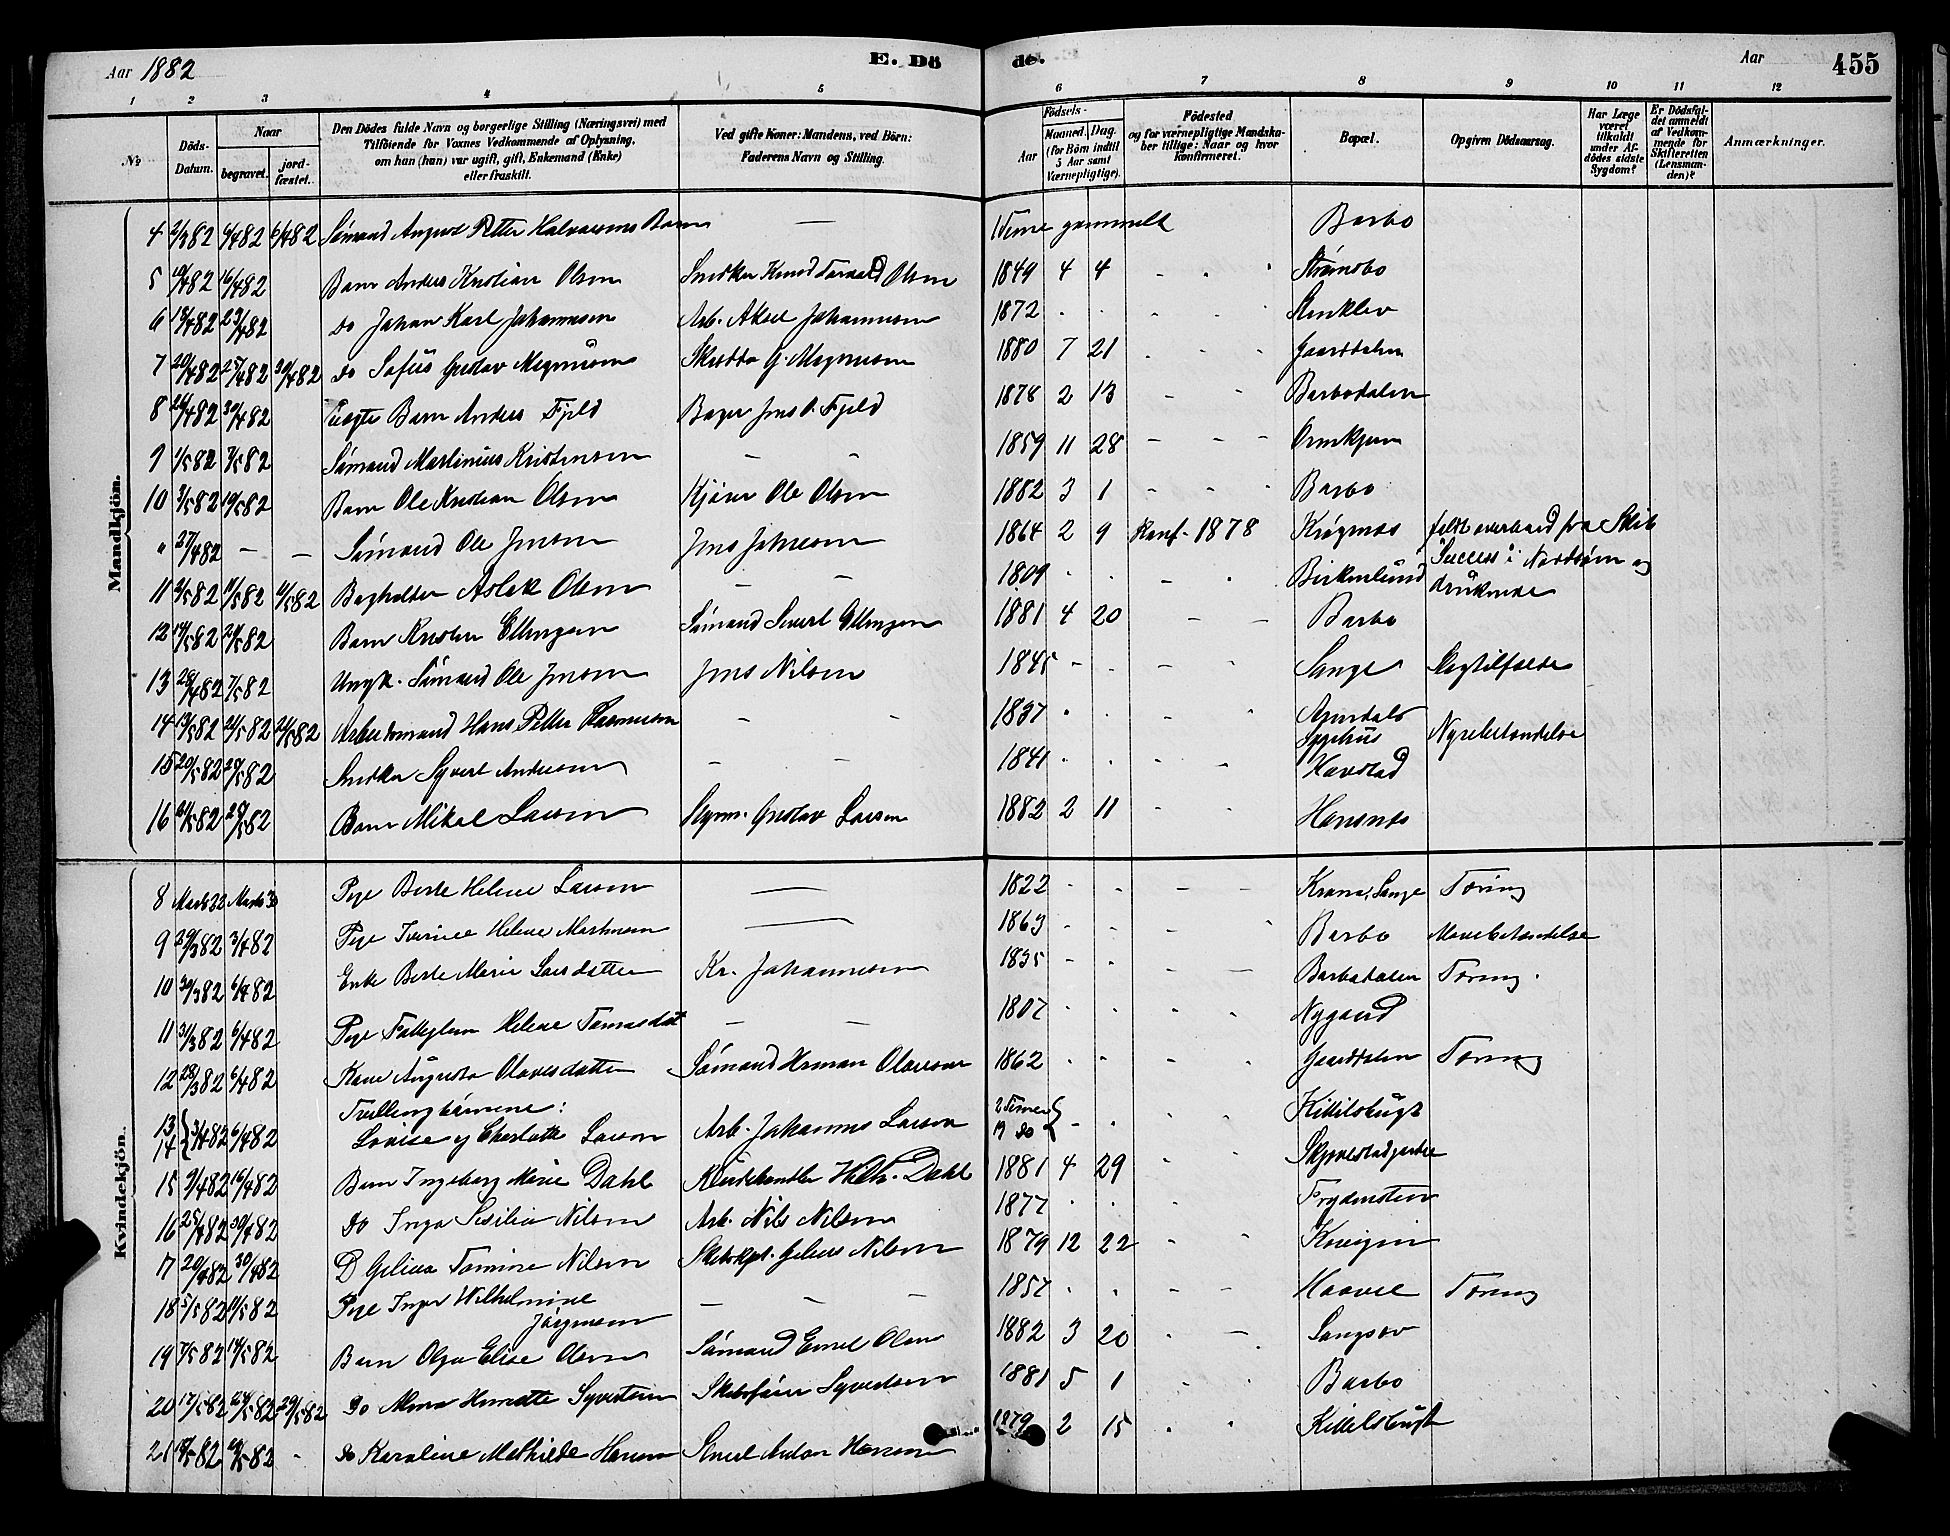 Aar 1882
E. Dö
de.
Aar
455
1 2 3 4 5 6 7 8 9 10 11 12
No
Döds-Datum.
Naar
begravet.
jord-fæstet.
Den Dödes fulde Navn og borgerlige Stilling (Næringsvei) med
Tilföiende for Voxnes Vedkommende af Oplysning,
om han (hun) var ugift, gift, Enkemand (Enke)
eller fraskilt.
Ved gifte Koner: Mandens, ved Börn:
Faderens Navn og Stilling.
Födsels-
Aar
Maaned. Dag.
(for Börn indtil
5 Aar samt
Værnepligtige).
Födested
og for værnepligtige Mandska-
ber tillige: Naar og hvor
konfirmeret.
Bopæl.
Opgiven Dödsaarsag.
Har Læge
været
tilkaldt
under Af-
dödes sidste
Sygdom?
Er Dödsfal-
det anmeldt
af Vedkom-
mende for
Skifteretten
(Lensman-
den)?
Anmærkninger.
Mandkjön.
4 2/3 82 6/4 82 6/4 82 Sömand August Petter Halvorsens Barn — 1 Time gammelt Barbo
5 10/4 82 16/4 82 Barn Anders Kristian Olsen Snedker Knud Olsen 1849 4 4 Strömsbo
6 13/4 82 23/4 82 Do Johan Karl Johannesen Arb. Aksel Johannesen 1872 Stenklev
7 20/4 82 25/4 82 30/4 82 Do Sofus Gustav Magnusen G. Magnusen 1880 7 21 Gaarddalen
8 24/4 82 30/4 82 Uægte Barn Anders Fjeld Bager Jens O. Fjeld 1878 2 13 Barbodalen
9 1/5 82 7/5 82 Sömand Martinius Kristensen — — 1859 11 28 Ormkjern
10 3/5 82 10/5 82 Barn Ole Kristian Olsen Kjörer Ole Olsen 1882 3 1 Barbo
" 27/4 82 — — Sömand Ole Jensen Jens Johnsen 1864 2 9 Konf. 1878 Krögenæs faldt overbord fra Skib
Success i Nordsöen og
druknede
11 5/5 82 11/5 82 11/5 82 Bogholder Aslak Olsen — — 1809 Birkenlund
12 14/5 82 21/5 82 Barn Kristen Ellingsen Sömand Sivert Ellingsen 1881 4 20 Barbo
13 28/4 82 7/5 82 Ungk. Sömand Ole Jensen Jens Nilsen 1845 Songe Slagtilfælde
14 13/5 82 21/5 82 21/5 82 Arbeidsmand Hans Petter Rasmussen — 1837 Arendals
Sygehus Nyrebetændelse
15 20/5 82 29/5 82 Snedker Syvert Andersen — — 1841 Havstad
16 21/5 82 29/5 82 Barn Mikal Larsen Styrm. Gustav Larsen 1882 2 11 Hansnes
Kvindekjön.
8 Marts 22 Marts 30 Pige Berte Helene Larsen — 1822 Krana, Songe Tæring
9 29/3 82 3/4 82 Pige Iverine Helene Martinsen — 1863 Barbo Mavebetændelse
10 30/3 82 6/4 82 Enke Berte Marie Larsdatter Kr. Johannesen 1835 Barbodalen Tæring.
11 31/3 82 6/4 82 Pige Helene Tomasdat — — 1807 Nygaard
12 28/3 82 6/4 82 Kone Augusta Olavesdatter Sömand Herman Olavesen 1862 Gaarddalen Tæring
13
14 3/4 82 6/4 82 Tvillingbörnene:
Lovise og Charlotte Larsen Arb. Johannes Larsen 2 Timer
19 do Kittelsbugt
15 9/4 82 16/4 82 Barn Ingeborg Marie Dahl Wilh. Dahl 1881 4 29
16 25/4 82 30/4 82 Do Inga Sesilie Nilsen Arb. Nils Nilsen 1877 Frydensten
17 20/4 82 30/4 82 D Gelina Tomine Nilsen Skibskpt. Gelius Nilsen 1879 12 22 Kovigen
18 5/5 82 11/5 82 Pige Inger Wilhelmine
Jörgensen — — — 1857 Haavel Tæring
19 7/5 82 14/5 82 Barn Olga Elise Olsen Sömand Emil Olsen 1882 3 20 Langsæv
20 17/5 82 24/5 82 29/5 82 Do Alma Henriette Syvertsen Skibsförer Syvertsen 1881 5 1 Barbo
21 18/5 82 28/5 82 - Do Karoline Mathilde Hansen Smed Anton Hansen 1879 2 15 Kittelsbugt